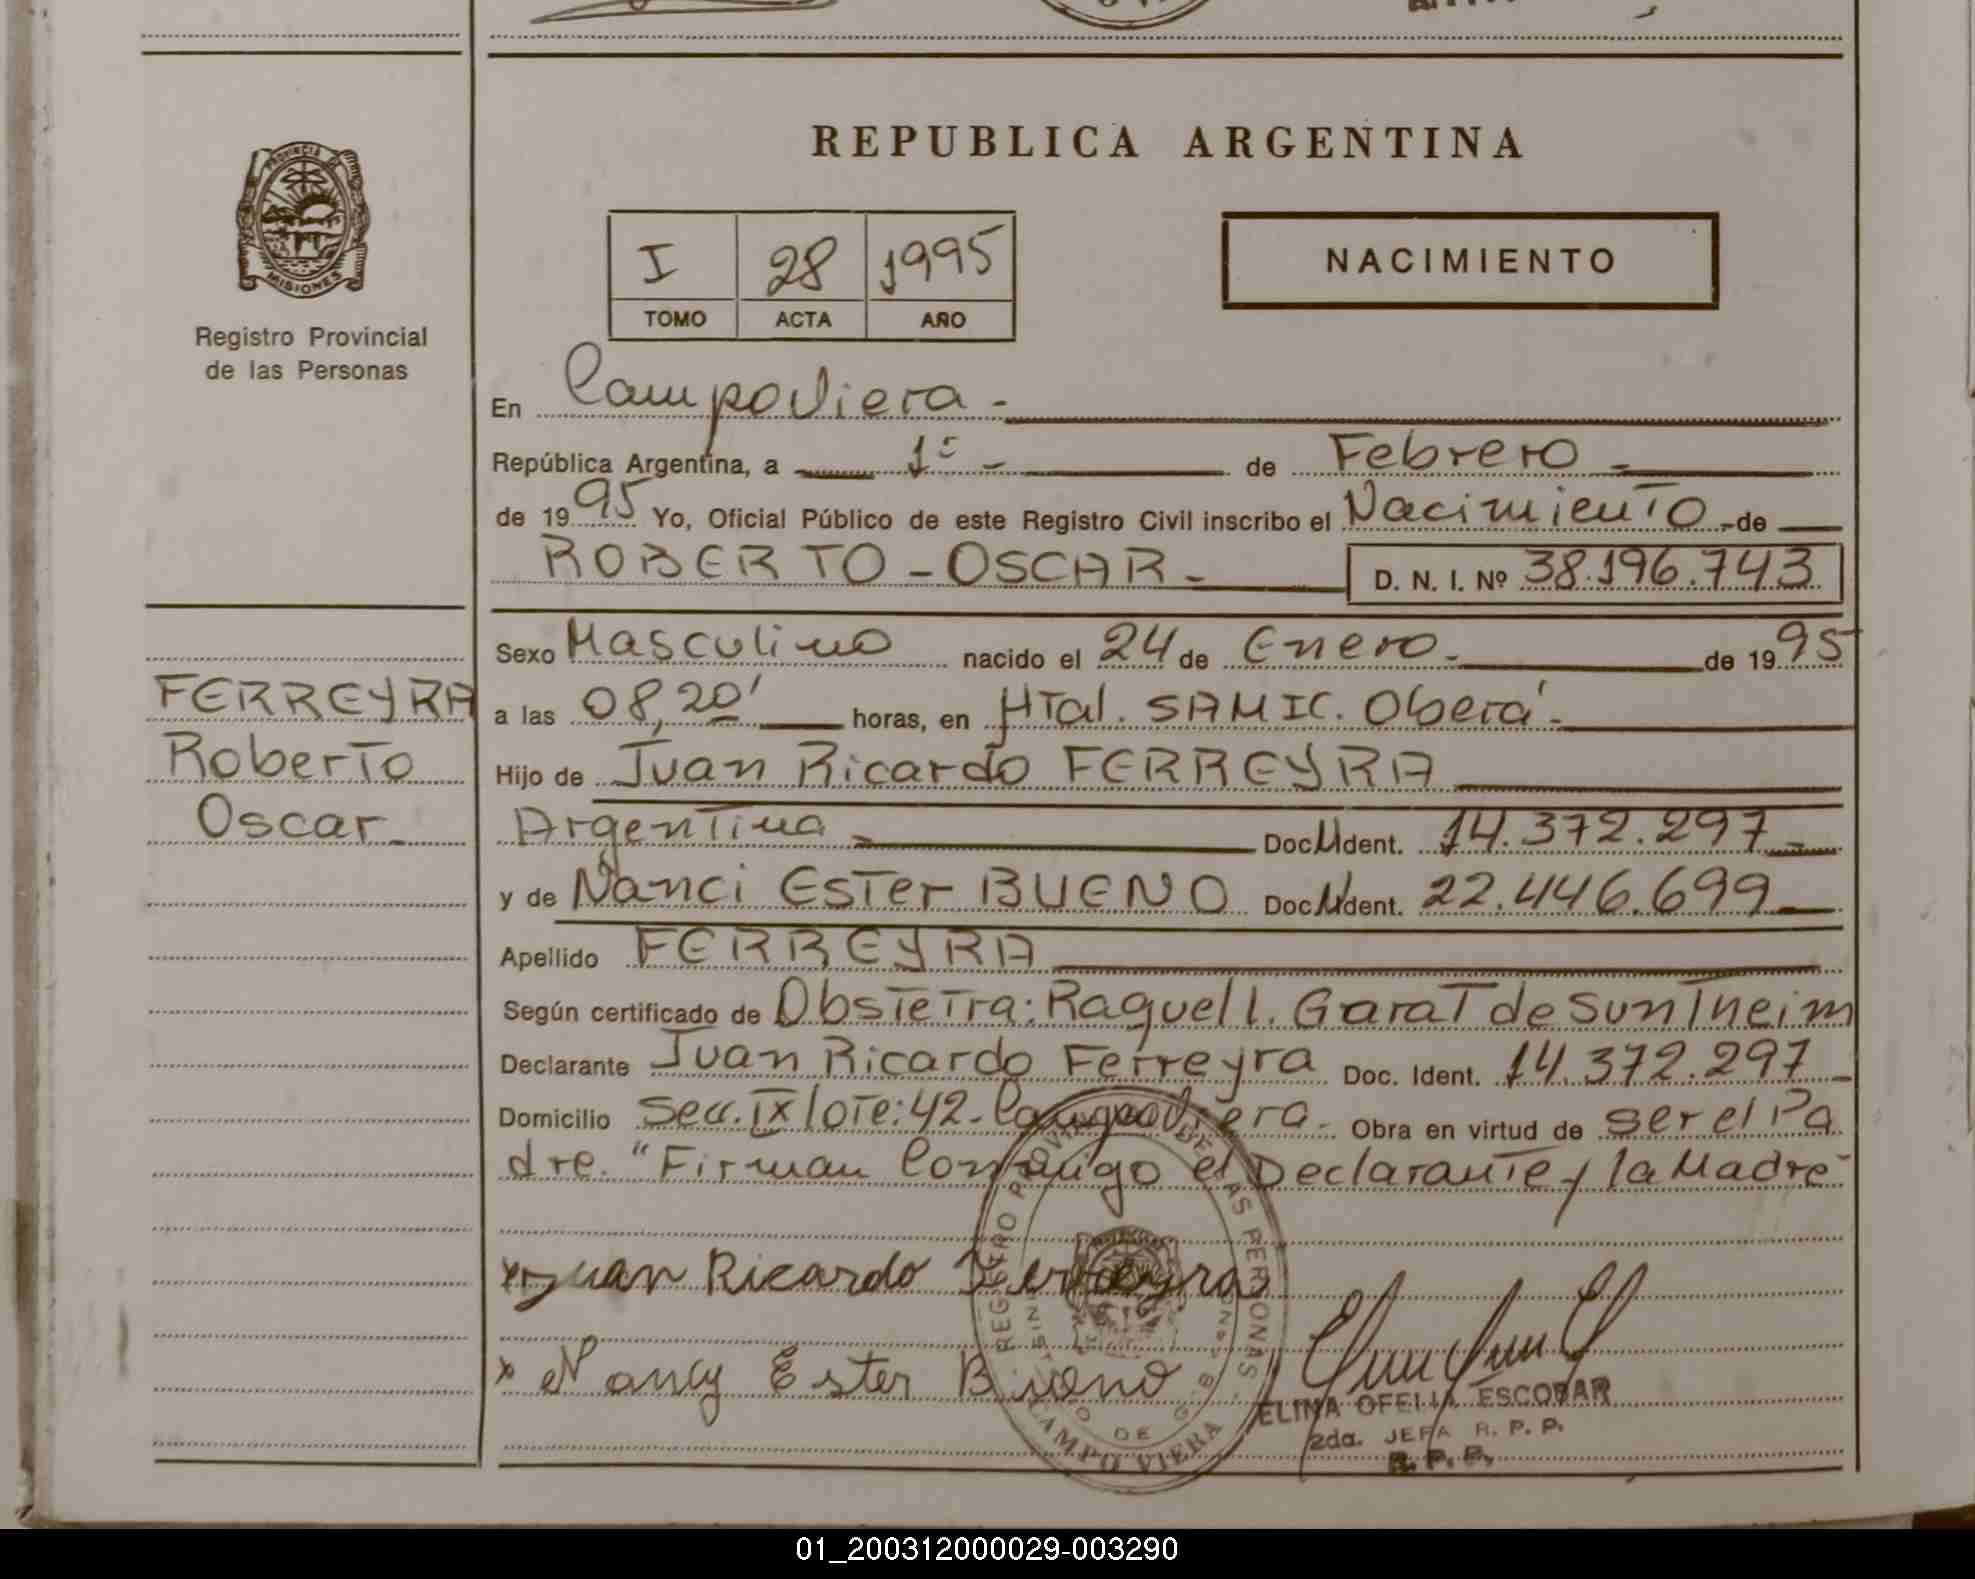 REPUBLICA ARGENTINA
PROVINCIA DE
MISIONES
Registro Provincial
de las Personas
I 28 1995
TOMO ACTA AÑO
NACIMIENTO
En Campo Viera -
República Argentina, a 1º - de Febrero -
de 1995 Yo, Oficial Público de este Registro Civil inscribo el Nacimiento - de
ROBERTO - OSCAR - D. N. I. Nº 38.196.743
Sexo Masculino nacido el 24 de Enero. - de 1995
a las 08,20' horas, en HTal. SAMIC. Oberá. -
Hijo de Juan Ricardo FERREYRA
Argentina - Doc. Ident. 14.372.297 -
y de Nanci Ester BUENO Doc. Ident. 22.446.699 -
Apellido FERREYRA
Según certificado de Obstetra: Raquel I. Garat de Suntheim
Declarante Juan Ricardo Ferreyra Doc. Ident. 14.372.297 -
Domicilio Secc. IX lote: 42 - Campo Viera - Obra en virtud de ser el Pa
dre. "Firman Conmigo el Declarante y la Madre"
FERREYRA
Roberto
Oscar -
x Juan Ricardo Ferreyra
x Nancy Ester Bueno
REGISTRO PROVINCIAL DE LAS PERSONAS
CAMPO VIERA
ELINA OFELIA ESCOBAR
2da. JEFA R. P. P.
R. P. P.
01_200312000029-003290